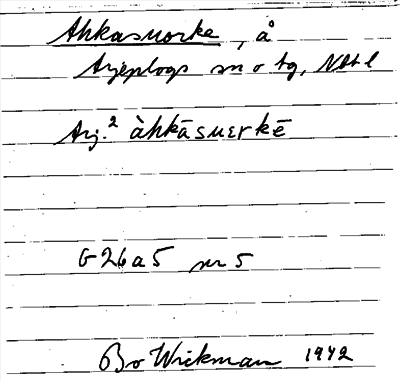 Ahkasuorke, å
Arjeplogs sn o tg, Nbtl
Arj.² àhkāsuɛrkē
G26a5 nr 5
Bo Wickman 1942